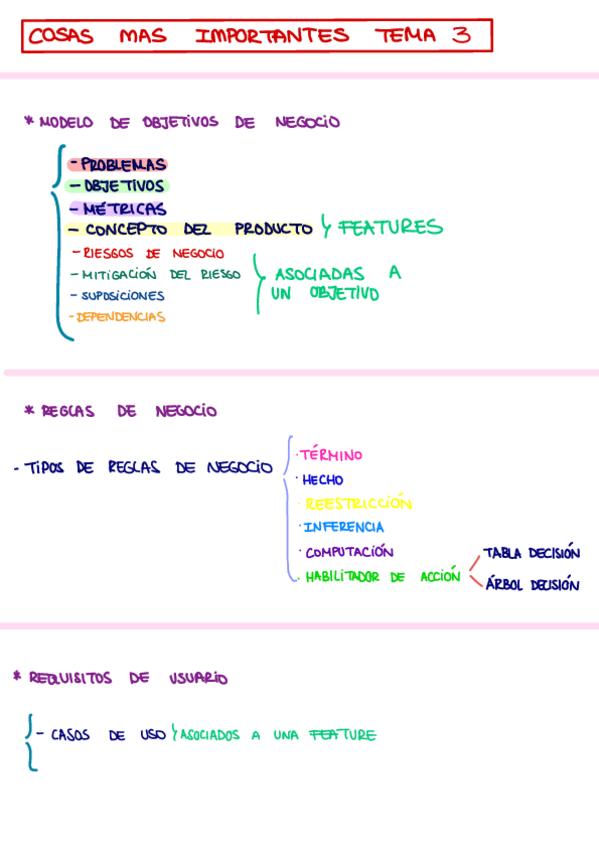 COSAS MAS IMPORTANTES TEMA 3
* MODELO DE OBJETIVOS DE NEGOCIO
- PROBLEMAS
- OBJETIVOS
- MÉTRICAS
- CONCEPTO DEL PRODUCTO y FEATURES
- RIESGOS DE NEGOCIO
- MITIGACIÓN DEL RIESGO
- SUPOSICIONES
- DEPENDENCIAS
ASOCIADAS A
UN OBJETIVO
* REGLAS DE NEGOCIO
- TIPOS DE REGLAS DE NEGOCIO
· TÉRMINO
· HECHO
· REESTRICCIÓN
· INFERENCIA
· COMPUTACIÓN
· HABILITADOR DE ACCIÓN
TABLA DECISIÓN
ÁRBOL DECISIÓN
* REQUISITOS DE USUARIO
- CASOS DE USO y ASOCIADOS A UNA FEATURE